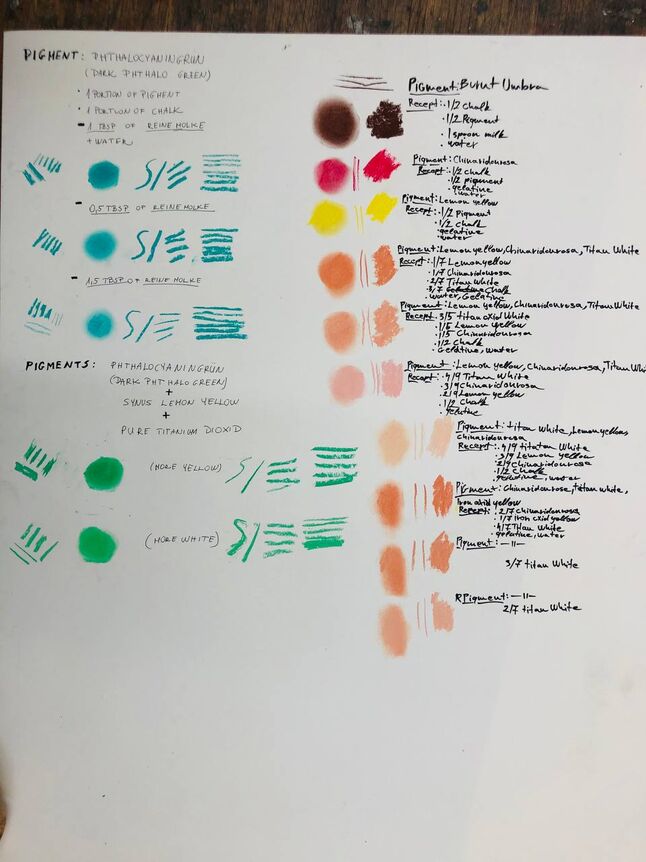 PIGMENT: PHTHALOCYANINGRÜN
(DARK PHTHALO GREEN)
· 1 PORTION OF PIGMENT
· 1 PORTION OF CHALK
- 1 TBSP OF REINE MOLKE
+ WATER
- 0,5 TBSP OF REINE MOLKE
- 1,5 TBSP OF REINE MOLKE
PIGMENTS: PHTHALOCYANINGRÜN
(DARK PHTHALO GREEN)
+
SYNUS LEMON YELLOW
+
PURE TITANIUM DIOXID
(MORE YELLOW)
(MORE WHITE)
Pigment: Burnt Umbra
Recept: · 1/2 chalk
· 1/2 Pigment
· 1 spoon milk
· water
Pigment: Chinaridonrosa
Recept: · 1/2 chalk
· 1/2 pigment
· gelatine
water
Pigment: Lemon yellow
Recept: · 1/2 pigment
· 1/2 chalk
· gelatine
water
Pigment: Lemon yellow, Chinaridonrosa, Titan White
Recept: · 1/7 Lemon yellow
· 1/7 Chinaridonrosa
· 2/7 Titan White
· 3/7 Chalk
water, Gelatine
Pigment: Lemon yellow, Chinaridonrosa, Titan White
Recept: · 3/5 titan oxid White
· 1/5 Lemon yellow
· 1/5 Chinaridonrosa
· 1/2 Chalk
Gelatine, water
Pigment: Lemon yellow, Chinaridonrosa, Titan
Recept: · 4/9 Titan White
· 3/9 Chinaridonrosa
· 2/9 Lemon yellow
· 1/2 Chalk
gelatine
Pigment: titan White, Lemon yellow,
Chinaridonrosa
Recept: · 4/9 titatan White
· 3/9 Lemon yellow
· 2/9 chinaridonrosa
· 1/2 Chalk
· gelatine, water
Pigment: Chinaridonrose, titan white,
Iron oxid yellow
Recept: · 2/7 chinaridonrosa
· 1/7 Iron oxid yellow
· 4/7 Titan White
· gelatine, water
Pigment: —11—
3/7 titan White
RPigment: —11—
2/7 titan White